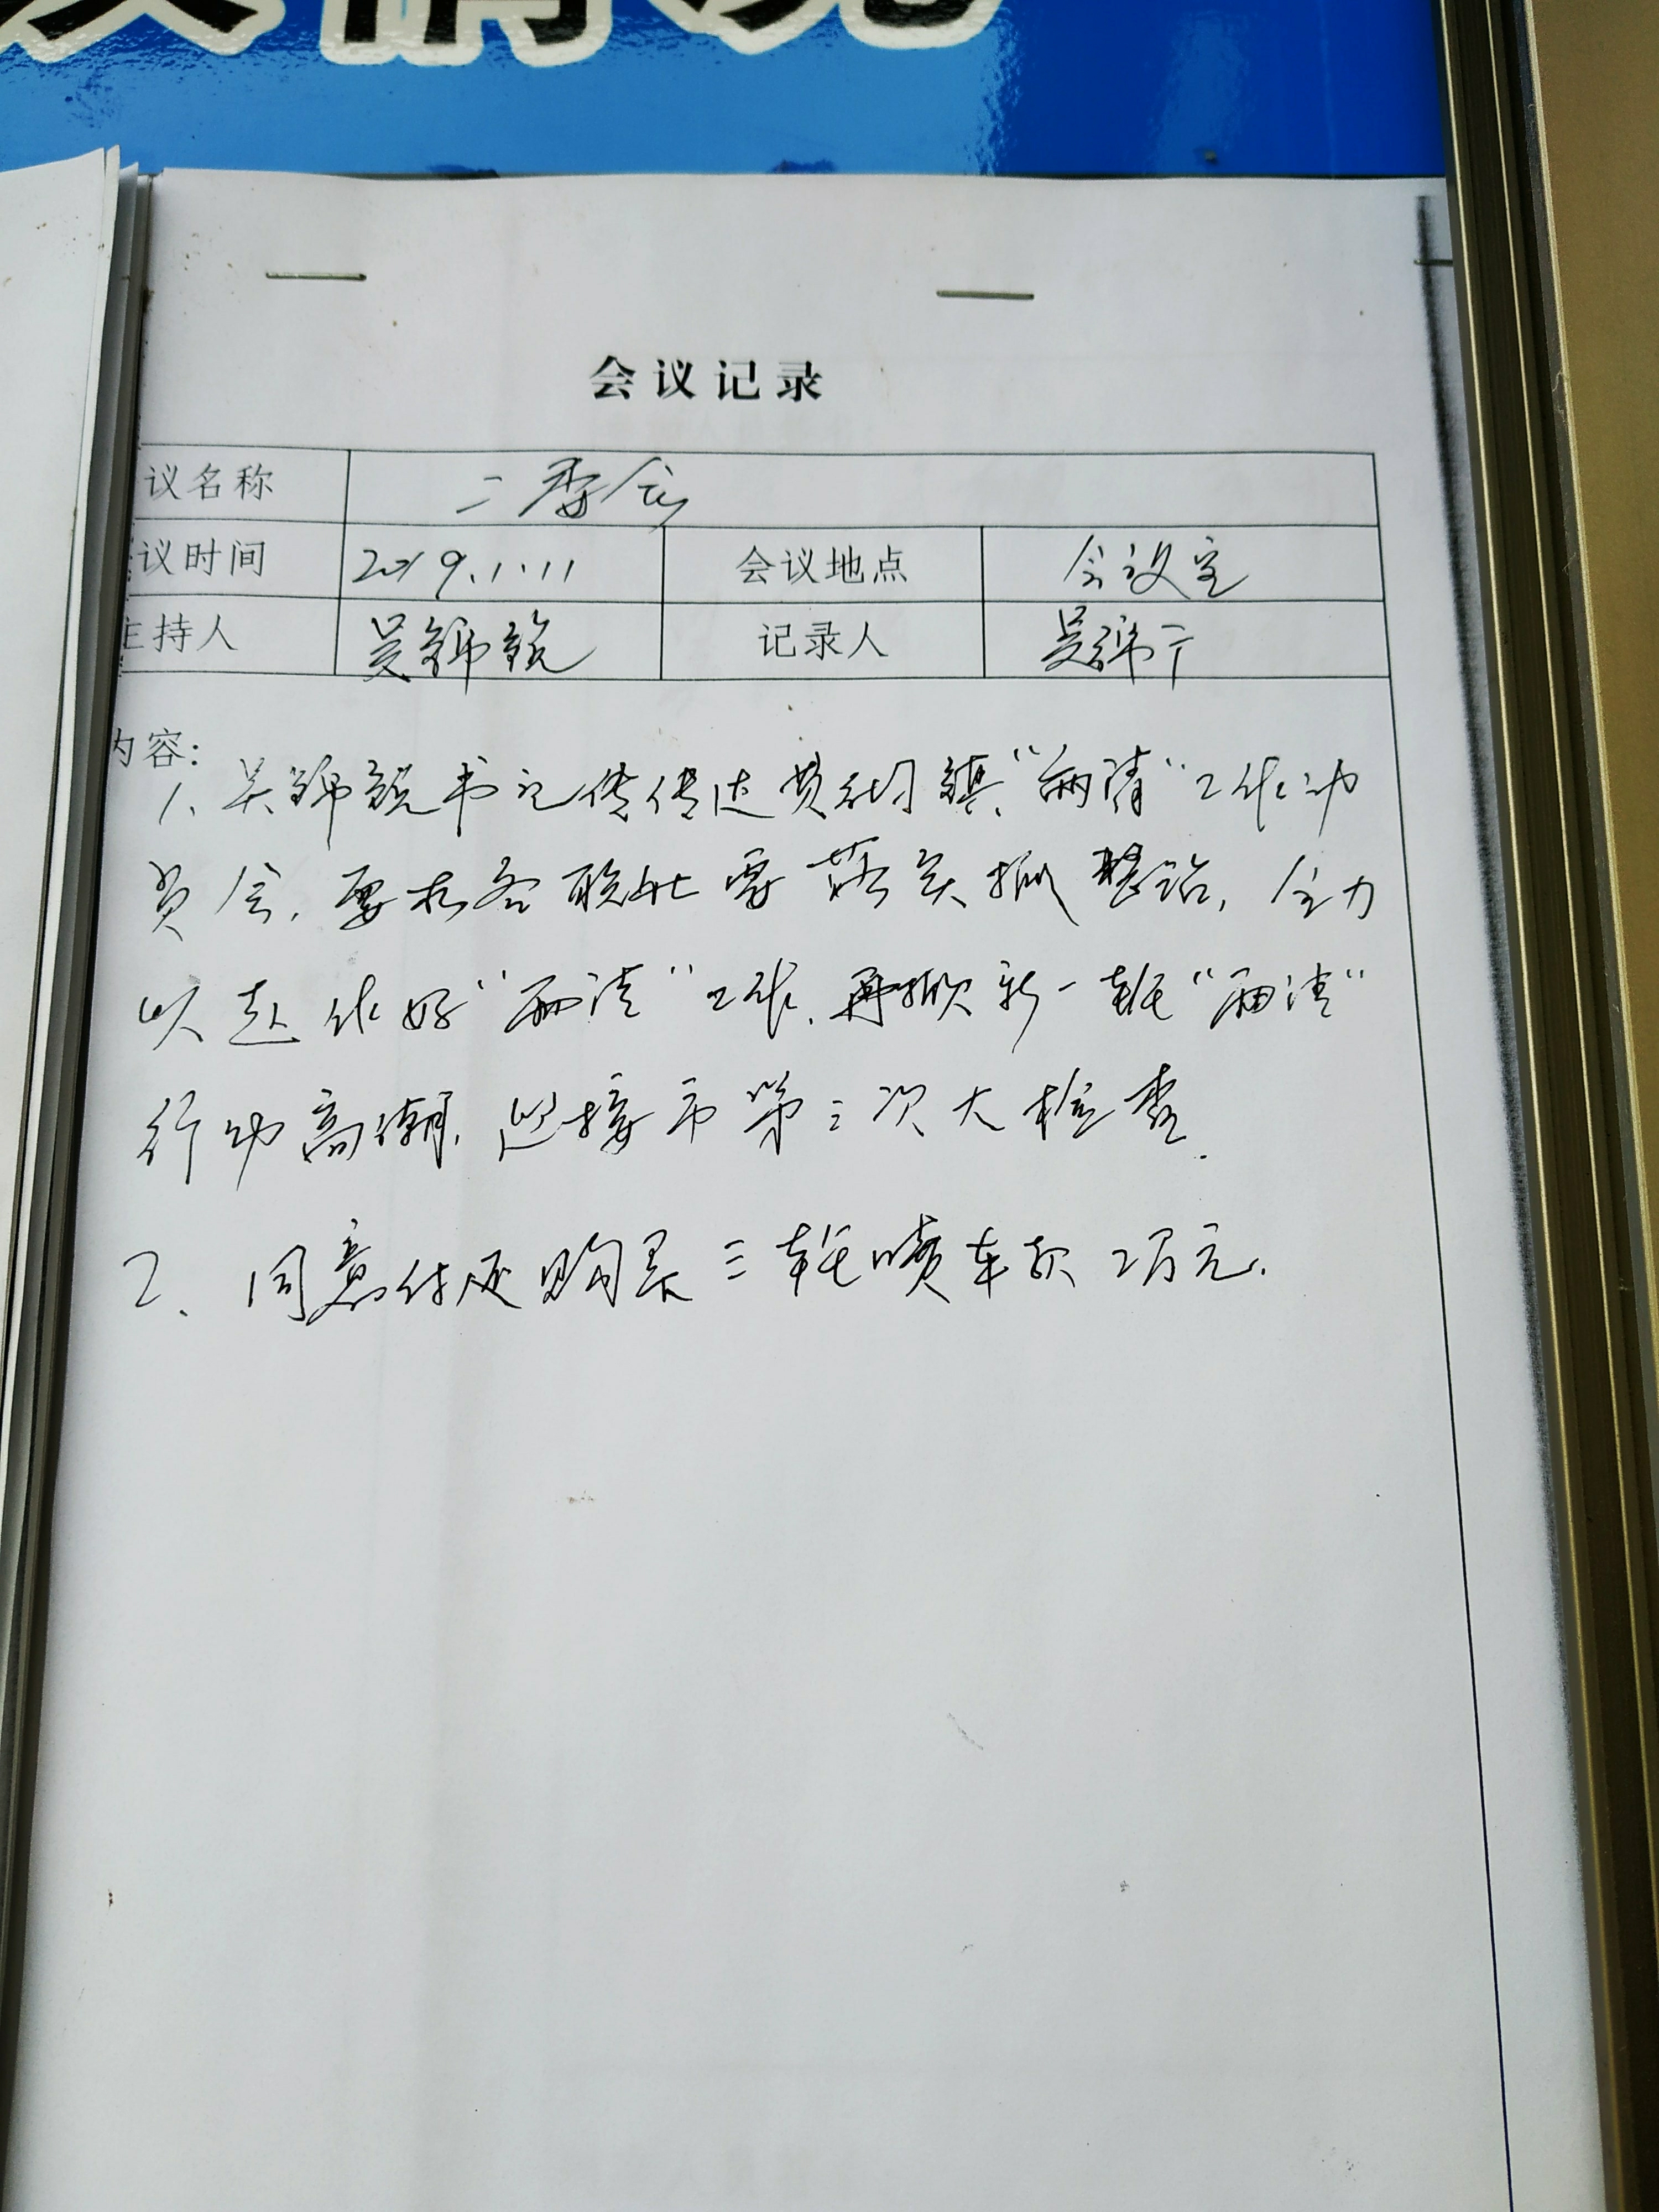 会议记录
议名称 二委会
议时间 2019.1.11 会议地点 会议室
主持人 吴锦锐 记录人 吴锦宁
内容:
1、吴锦锐书记传传达黄洞镇“两清”工作动
员会,要求各联社要落实抓整治,全力
以赴做好“两清”工作,再掀新一轮“两清”
行动高潮,迎接市第三次大检查.
2、同意付还购买三轮喷车款2万元.